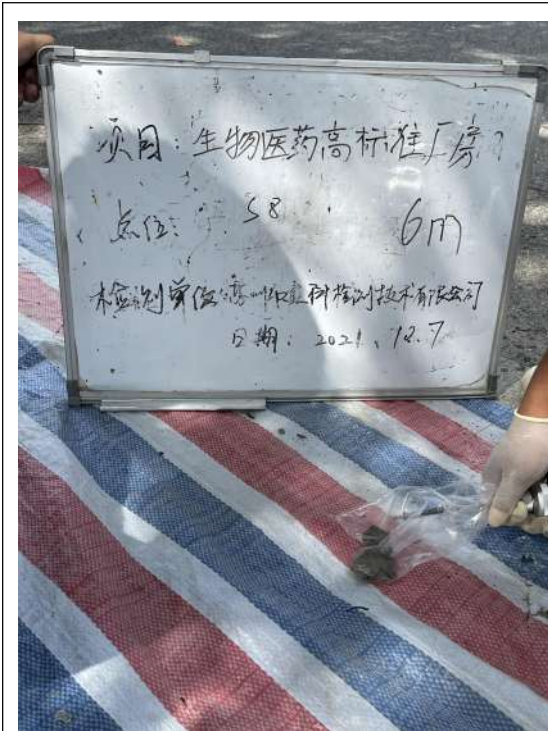 项目：生物医药高标准厂房
点位： S8 6m
检测单位 科检测技术有限公司
日期：2021.12.7